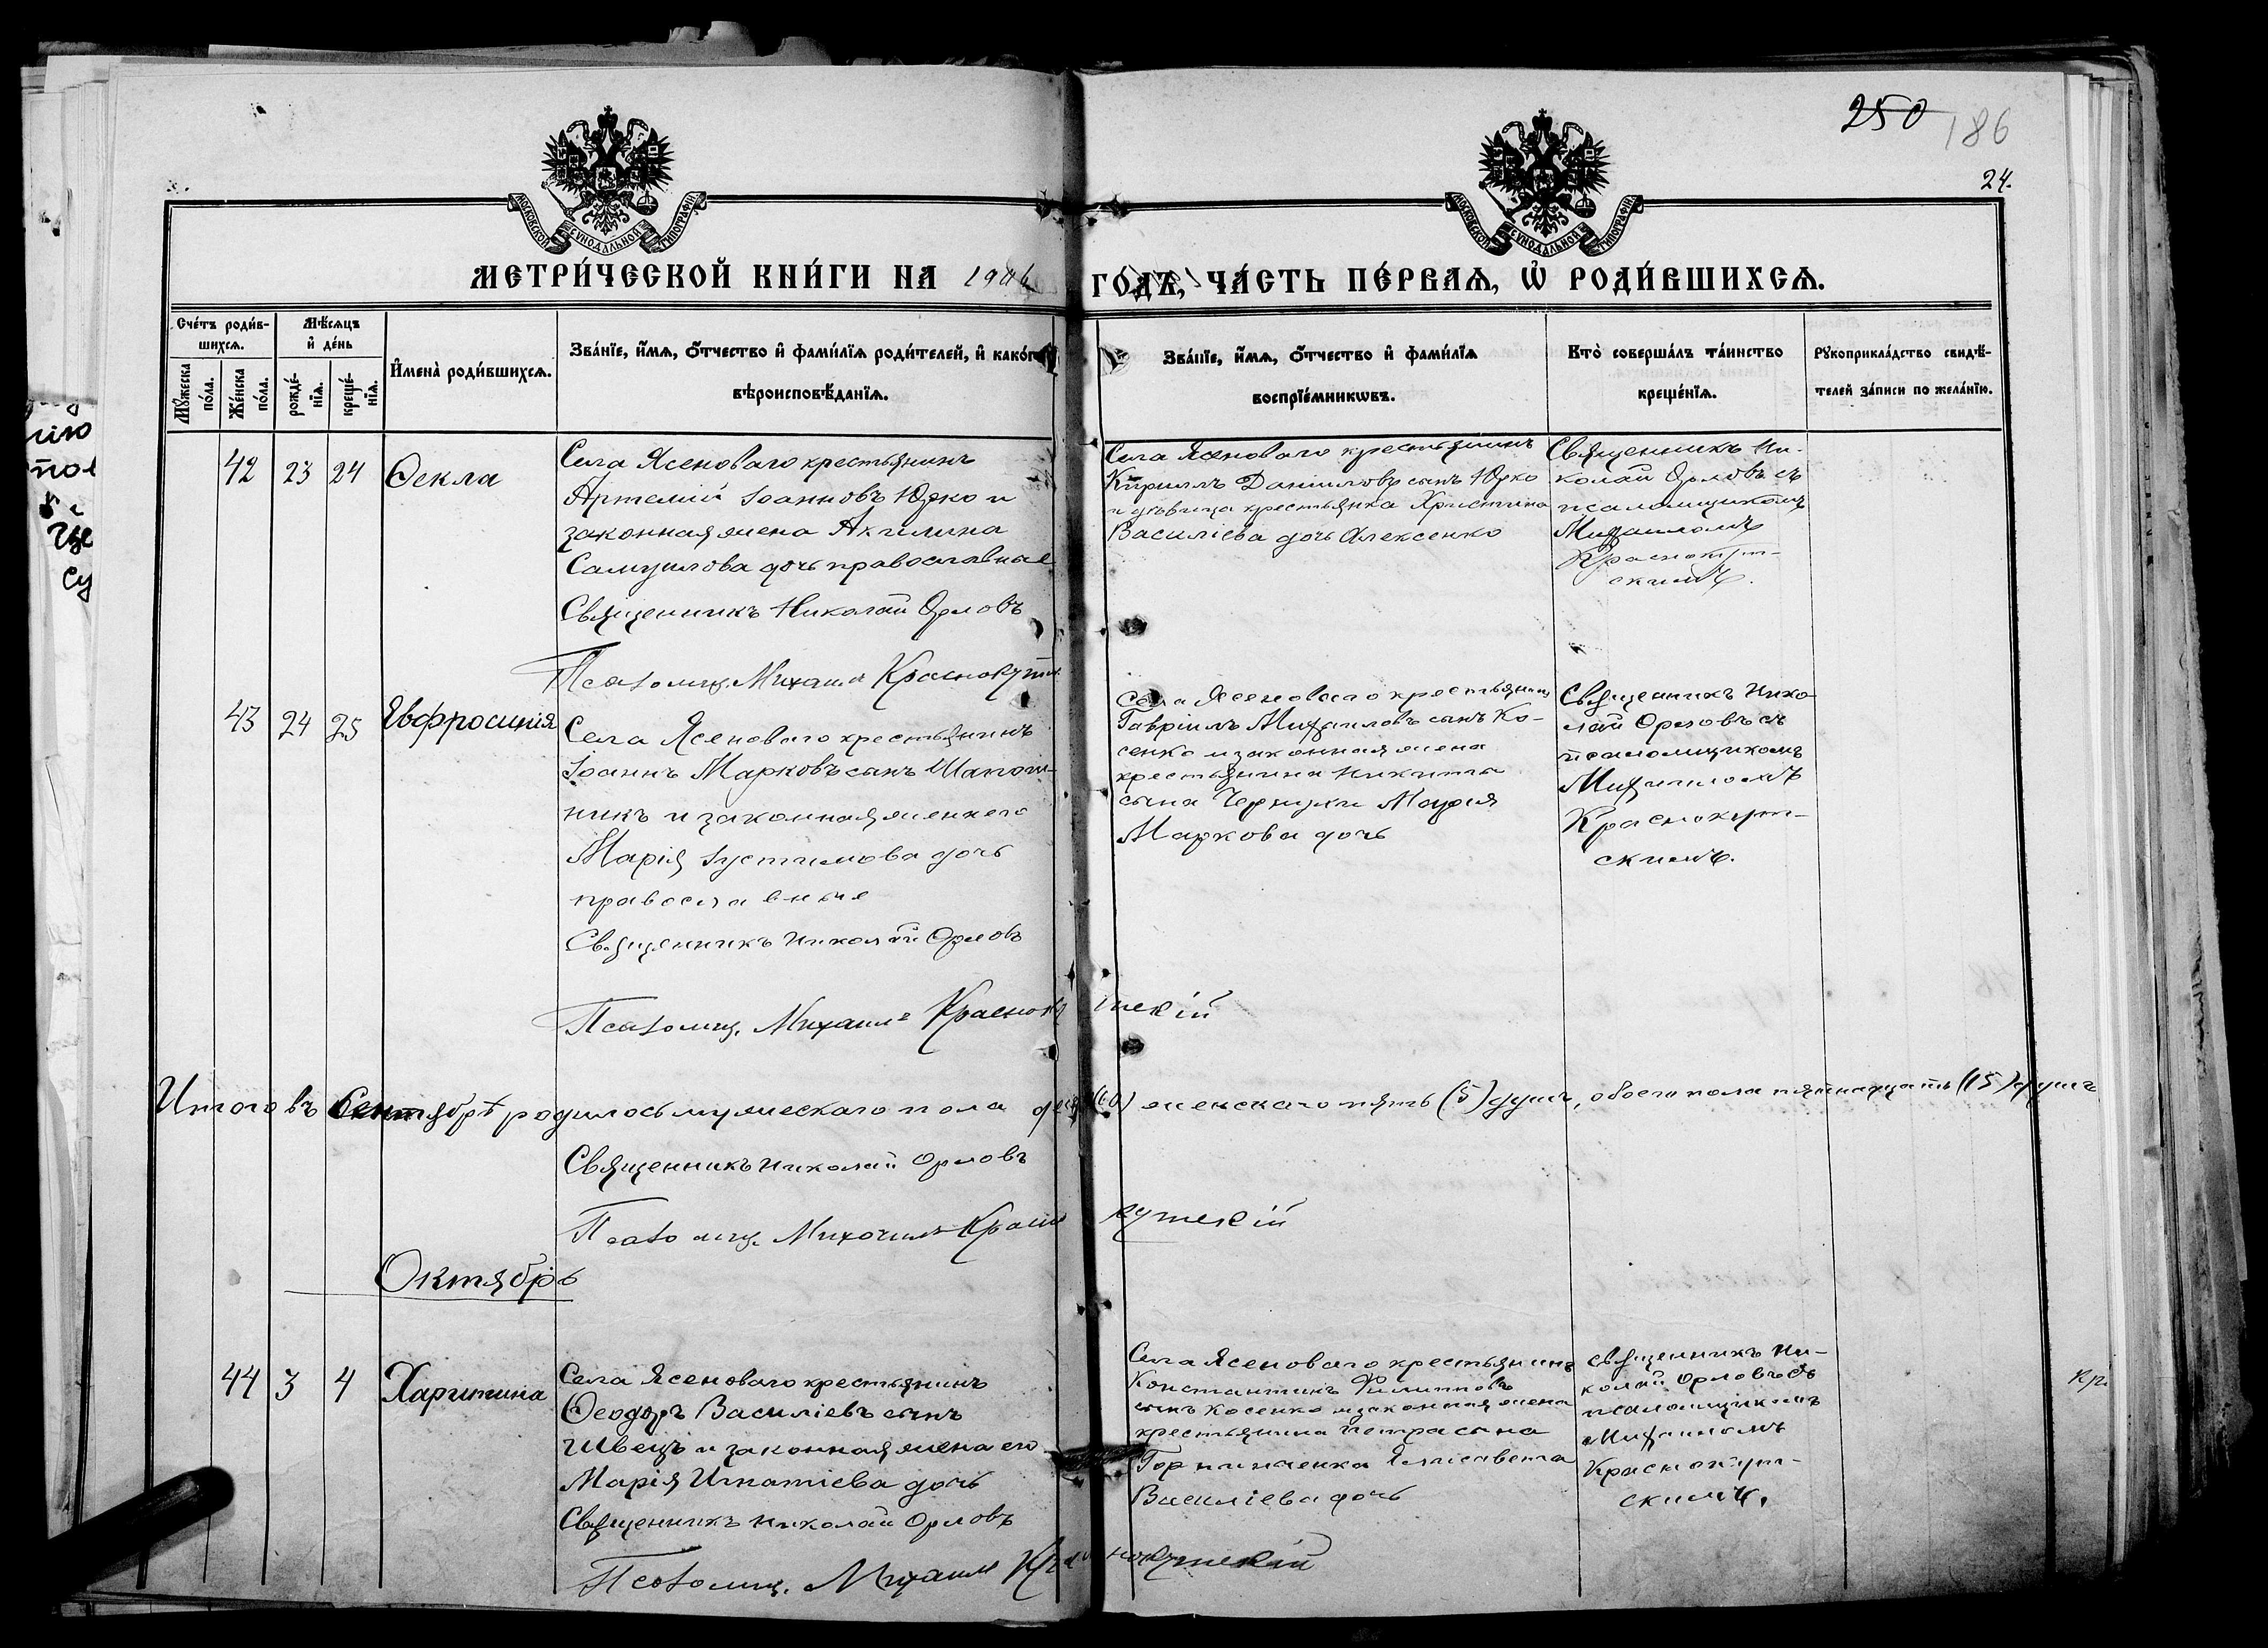 250 186
24.
МОСКОВСКОЙ СѴНОДАЛЬНОЙ ТИПОГРАФІИ
МОСКОВСКОЙ СѴНОДАЛЬНОЙ ТИПОГРАФІИ
МЕТРИ́ЧЕСКОЙ КНИ́ГИ НА 1906 ГОДЪ, ЧА́СТЬ ПЕ́РВАѦ, Ѡ҆ РОДИ́ВШИХСѦ.
Сче́тъ роди́в-
шихсѧ.
Мꙋ́жеска по́ла.
Же́нска по́ла.
Мѣ́сѧцъ
и҆ де́нь
рожде́-
нїѧ.
креще́-
нїѧ.
И҆мена̀ роди́вшихсѧ.
Зва́нїе, и҆́мѧ, ѻ҆́тчество и҆ фами́лїѧ роди́телей, и҆ како́гѡ
вѣроисповѣ́данїѧ.
Зва́нїе, и҆́мѧ, ѻ҆́тчество и҆ фами́лїѧ
воспрїе́мникѡвъ.
Кто̀ соверша́лъ та́инство
креще́нїѧ.
Рꙋкоприкла́дство свидѣ́-
телей за́писи по жела́нїю.
42 23 24 Ѳекла
Села Ясеноваго крестьянинъ
Артемій Іоанновъ Юрко и
законная жена Акилина
Самуилова дочь православные
Священникъ Николай Орловъ
Псаломщ. Михаилъ Краснокутск
Села Ясеноваго крестьянинъ
Кириллъ Даниловъ сынъ Юрко
и дѣвица крестьянка Христина
Василіева дочь Алексенко
Священникъ Ни-
колай Орловъ съ
псаломщикомъ
Михаиломъ
Краснокут-
скимъ.
43 24 25 Евфросинія
Села Ясеноваго крестьянинъ
Іоаннъ Марковъ сынъ Шапош-
никъ и законная жена его
Марія Іустинова дочь
православные
Священникъ Николай Орловъ
Псаломщ. Михаилъ Краснокутскій
Села Ясеноваго крестьянинъ
Гавріилъ Михаиловъ сынъ Ко-
сенко и законная жена
крестьянина Никиты
сына Марія
Маркова дочь
Священникъ Нико-
лай Орловъ съ
псаломщикомъ
Михаиломъ
Краснокут-
скимъ.
Итого въ Сентябрѣ родилось мужескаго пола (10) женскаго пять (5) душъ, обоего пола пятнадцать (15) душъ
Священникъ Николай Орловъ
Псаломщ. Михаилъ Краснокутскій
Октябрь
44 3 4 Харитина
Села Ясеноваго крестьянинъ
Ѳеодоръ Василіевъ сынъ
Швецъ и законная жена его
Марія Игнатіева дочь
Священникъ Николай Орловъ
Псаломщ. Михаилъ Краснокутскій
Села Ясеноваго крестьянинъ
Константинъ Филипповъ
сынъ Косенко и законная жена
крестьянина Петра сына
Елисавета
Василіева дочь
Священникъ Ни-
колай Орловъ съ
псаломщикомъ
Михаиломъ
Краснокут-
скимъ.
Кр.